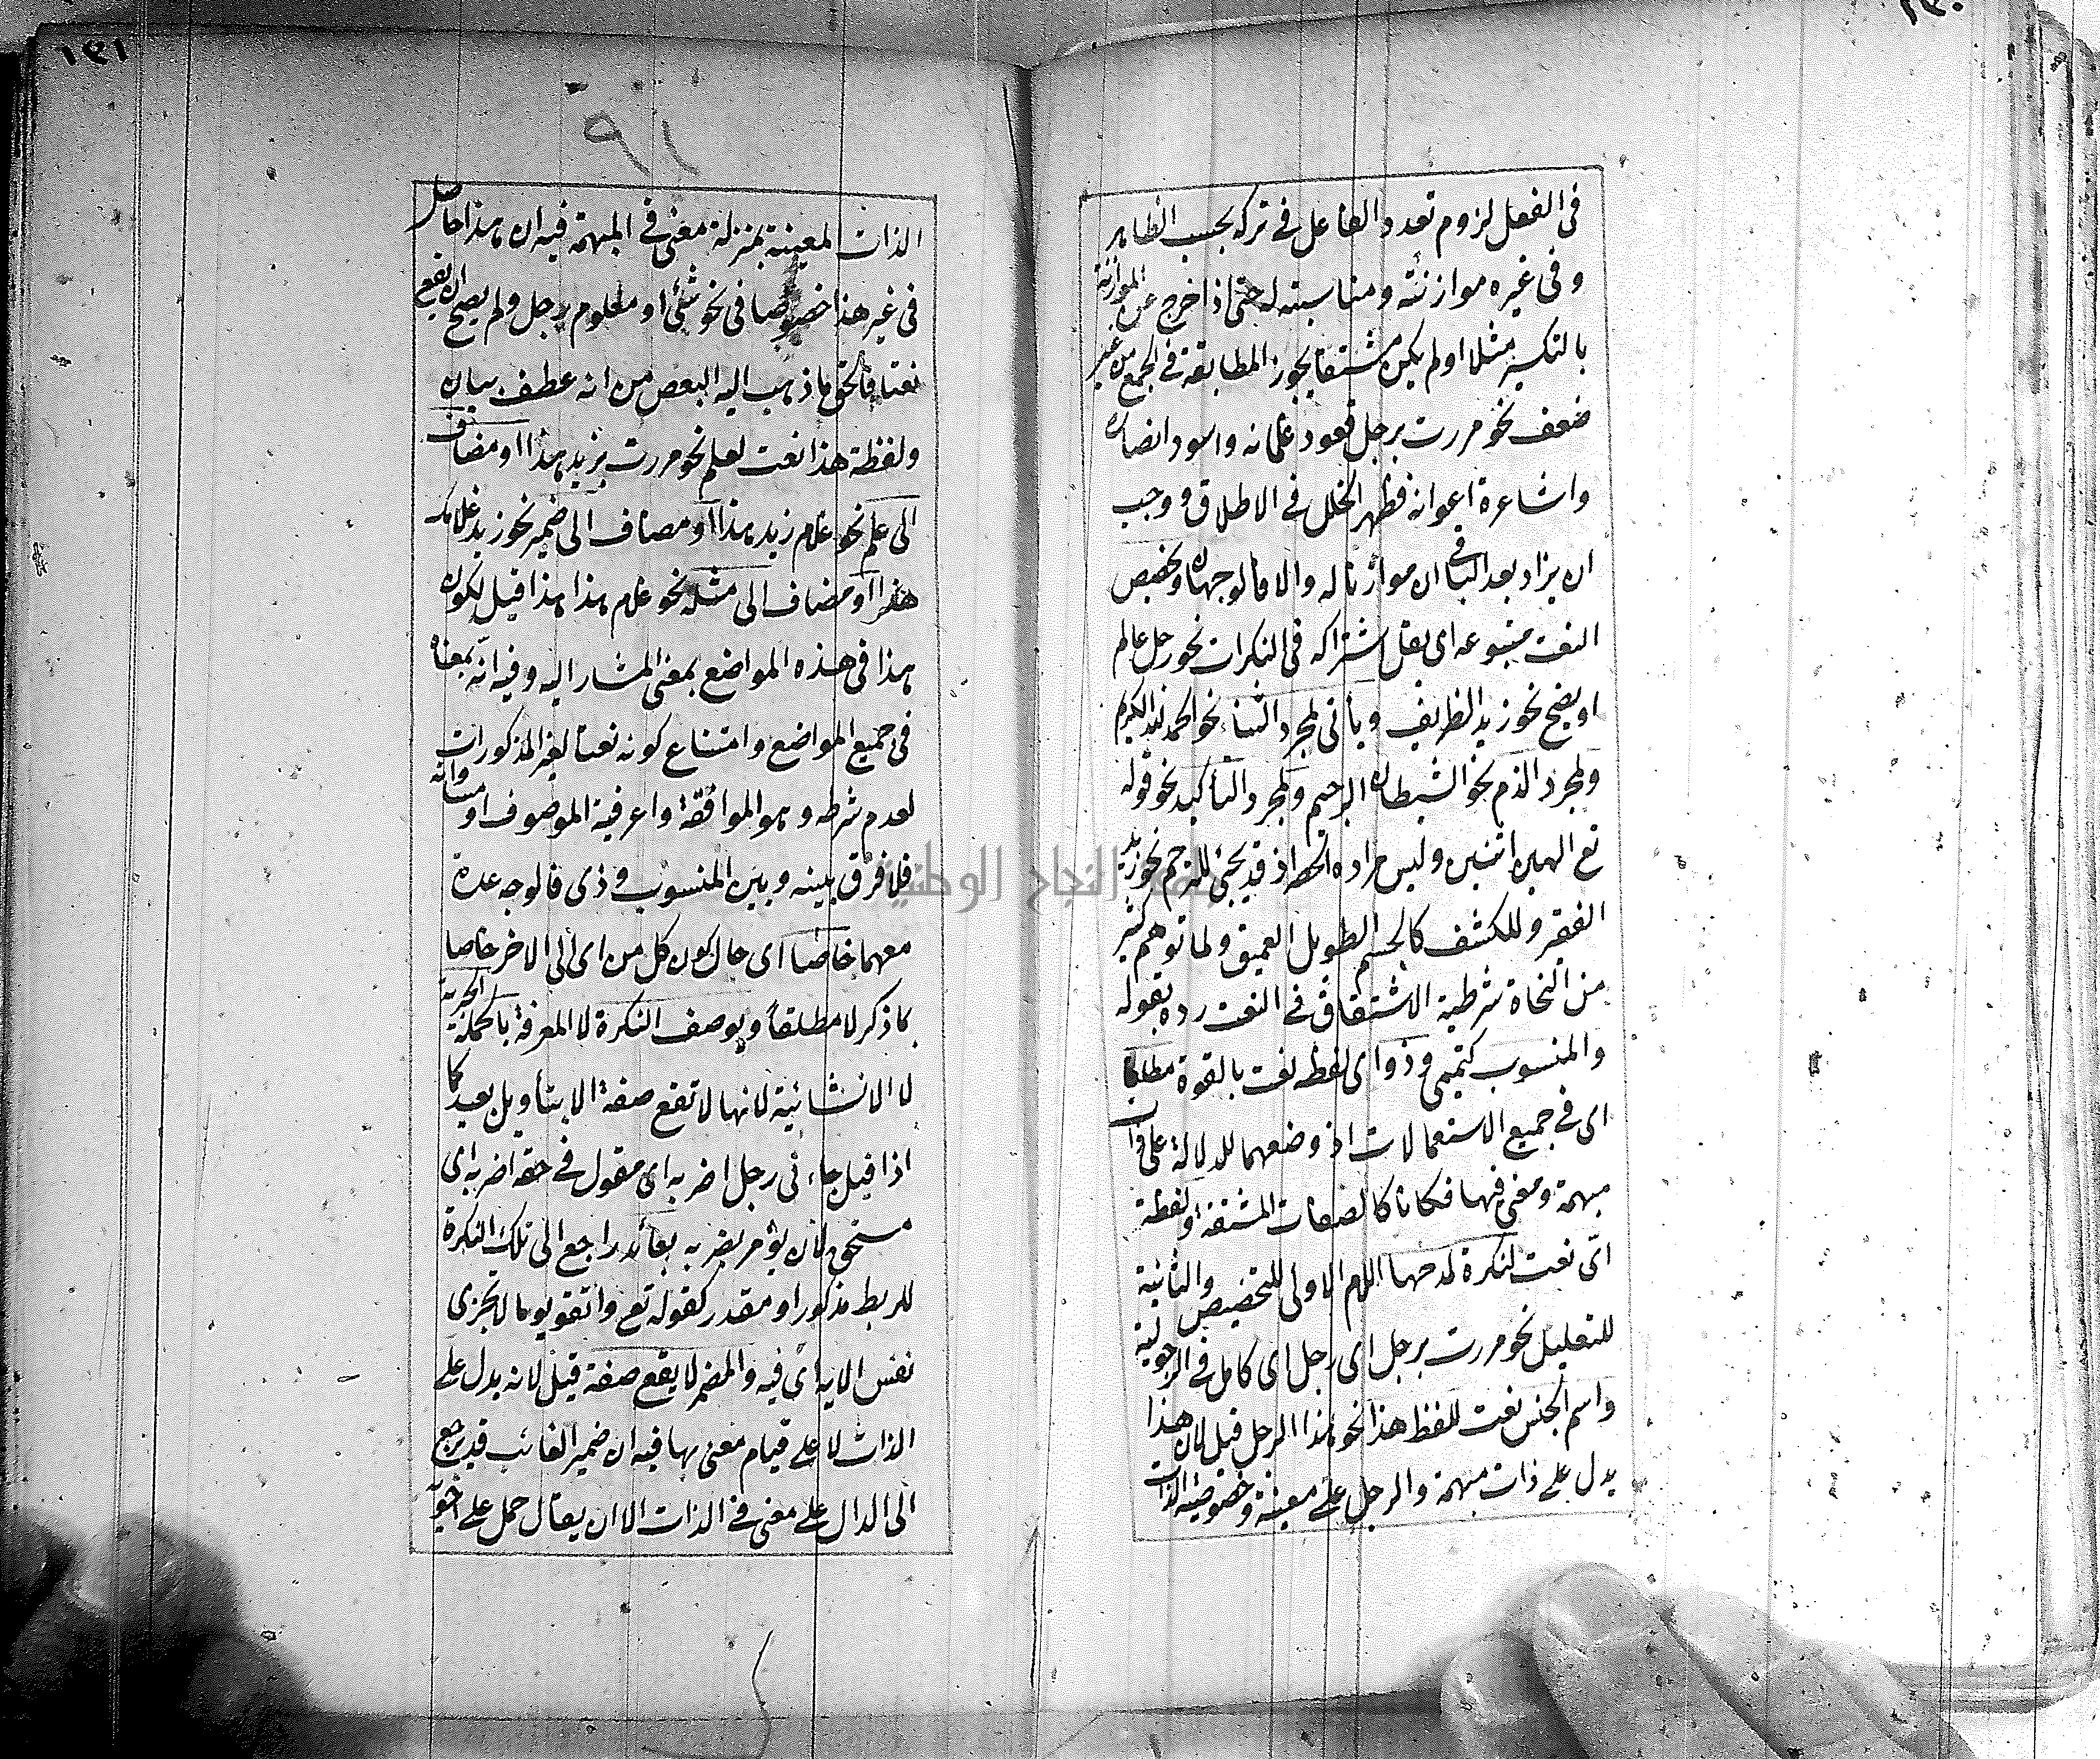 في الفعل لزوم تعدد الفاعل في تركه بحسب الظاهر
وفي غيره موازنته ومناسبته له حتى اذا خرج عن الموازنة
بالتكسير مثلا او لم يكن مشتقا يجوز المطابقة في الجمع من غير
ضعف نحو مررت برجل قعود غلمانه واسود
واشاعرة اعوانه فظهر الخلل في الاطلاق ووجب
ان يزاد بعد الباقي ان موازنا له والا فالوجهان وتخصيص
النعت متبوعه اى يقل اشتراكه في النكرات نحو رجل عالم
او يوضح نحو زيد الظريف ويأتى لمجرد الثناء نحو الحمد لله الكريم
ولمجرد الذم نحو الشيطان الرجيم ولمجرد التأكيد نحو قوله
تع الهين اثنين وليس مراده الحصر اذ قد يجئ للترحم نحو زيد
الفقير وللكشف كالجسم الطويل العميق ولما توهم كثير
من النحاة شرطية الاشتقاق في النعت رده بقوله
والمنسوب كتميمى وذو اى لفظه نعت بالقوة مطلقا
اى في جميع الاستعمالات اذ وضعهما للدلالة على ذات
مبهمة ومعنى فيها فكانا كالصفات المشتقة ولفظة
اىّ نعت لنكرة لمدحها اللام الاولى للتخصيص والثانية
للتعليل نحو مررت برجل اى رجل اى كامل في الرجولية
واسم الجنس نعت للفظ هذا نحو هذا الرجل قيل لان هذا
يدل على ذات مبهمة والرجل على معينة وخصوصية الذات
١٤١
٩١
الذات المعينة بمنزلة معنى في المبهمة فيه ان هذا حاصل
في غير هذا خصوصا في نحو شئ او معلوم رجل ولم يصح ان يقع
نعتا فالحق ما ذهب اليه البعض من انه عطف بيان
ولفظة هذا نعت لعلم نحو مررت بزيد هذا او مضاف
الى علم نحو غلام زيد هذا او مضاف الى ضمير نحو زيد غلامك
هذا او مضاف الى مثله نحو غلام هذا هذا قيل لكون
هذا في هذه المواضع بمعنى المشار اليه وفيه انه بمعناه
في جميع المواضع وامتناع كونه نعتا لغير المذكورات
لعدم شرطه وهو الموافقة واعرفية الموصوف او مساواته
فلا فرق بينه وبين المنسوب وذى فالوجه عدة
معهما خاصا اى حال كون كل من اى الى الاخر خاصا
بما ذكر لا مطلقا ويوصف النكرة لا المعرفة بالجملة الخبرية
لا الانشائية لانها لا تقع صفة الا بتأويل بعيد كما
اذا قيل جاءنى رجل اضربه اى مقول في حقه اضربه اى
مستحق لان يؤمر بضربه بعائد راجع الى تلك النكرة
للربط مذكور او مقدر كقوله تع واتقوا يوما لا تجزى
نفس الاية اى فيه والمضمر لا يقع صفة قيل لانه يدل على
الذات لا على قيام معنى بها فيه ان ضمير الغائب قد يرجع
الى الدال على معنى في الذات الا ان يقال حمل على
جامعة النجاح الوطنية